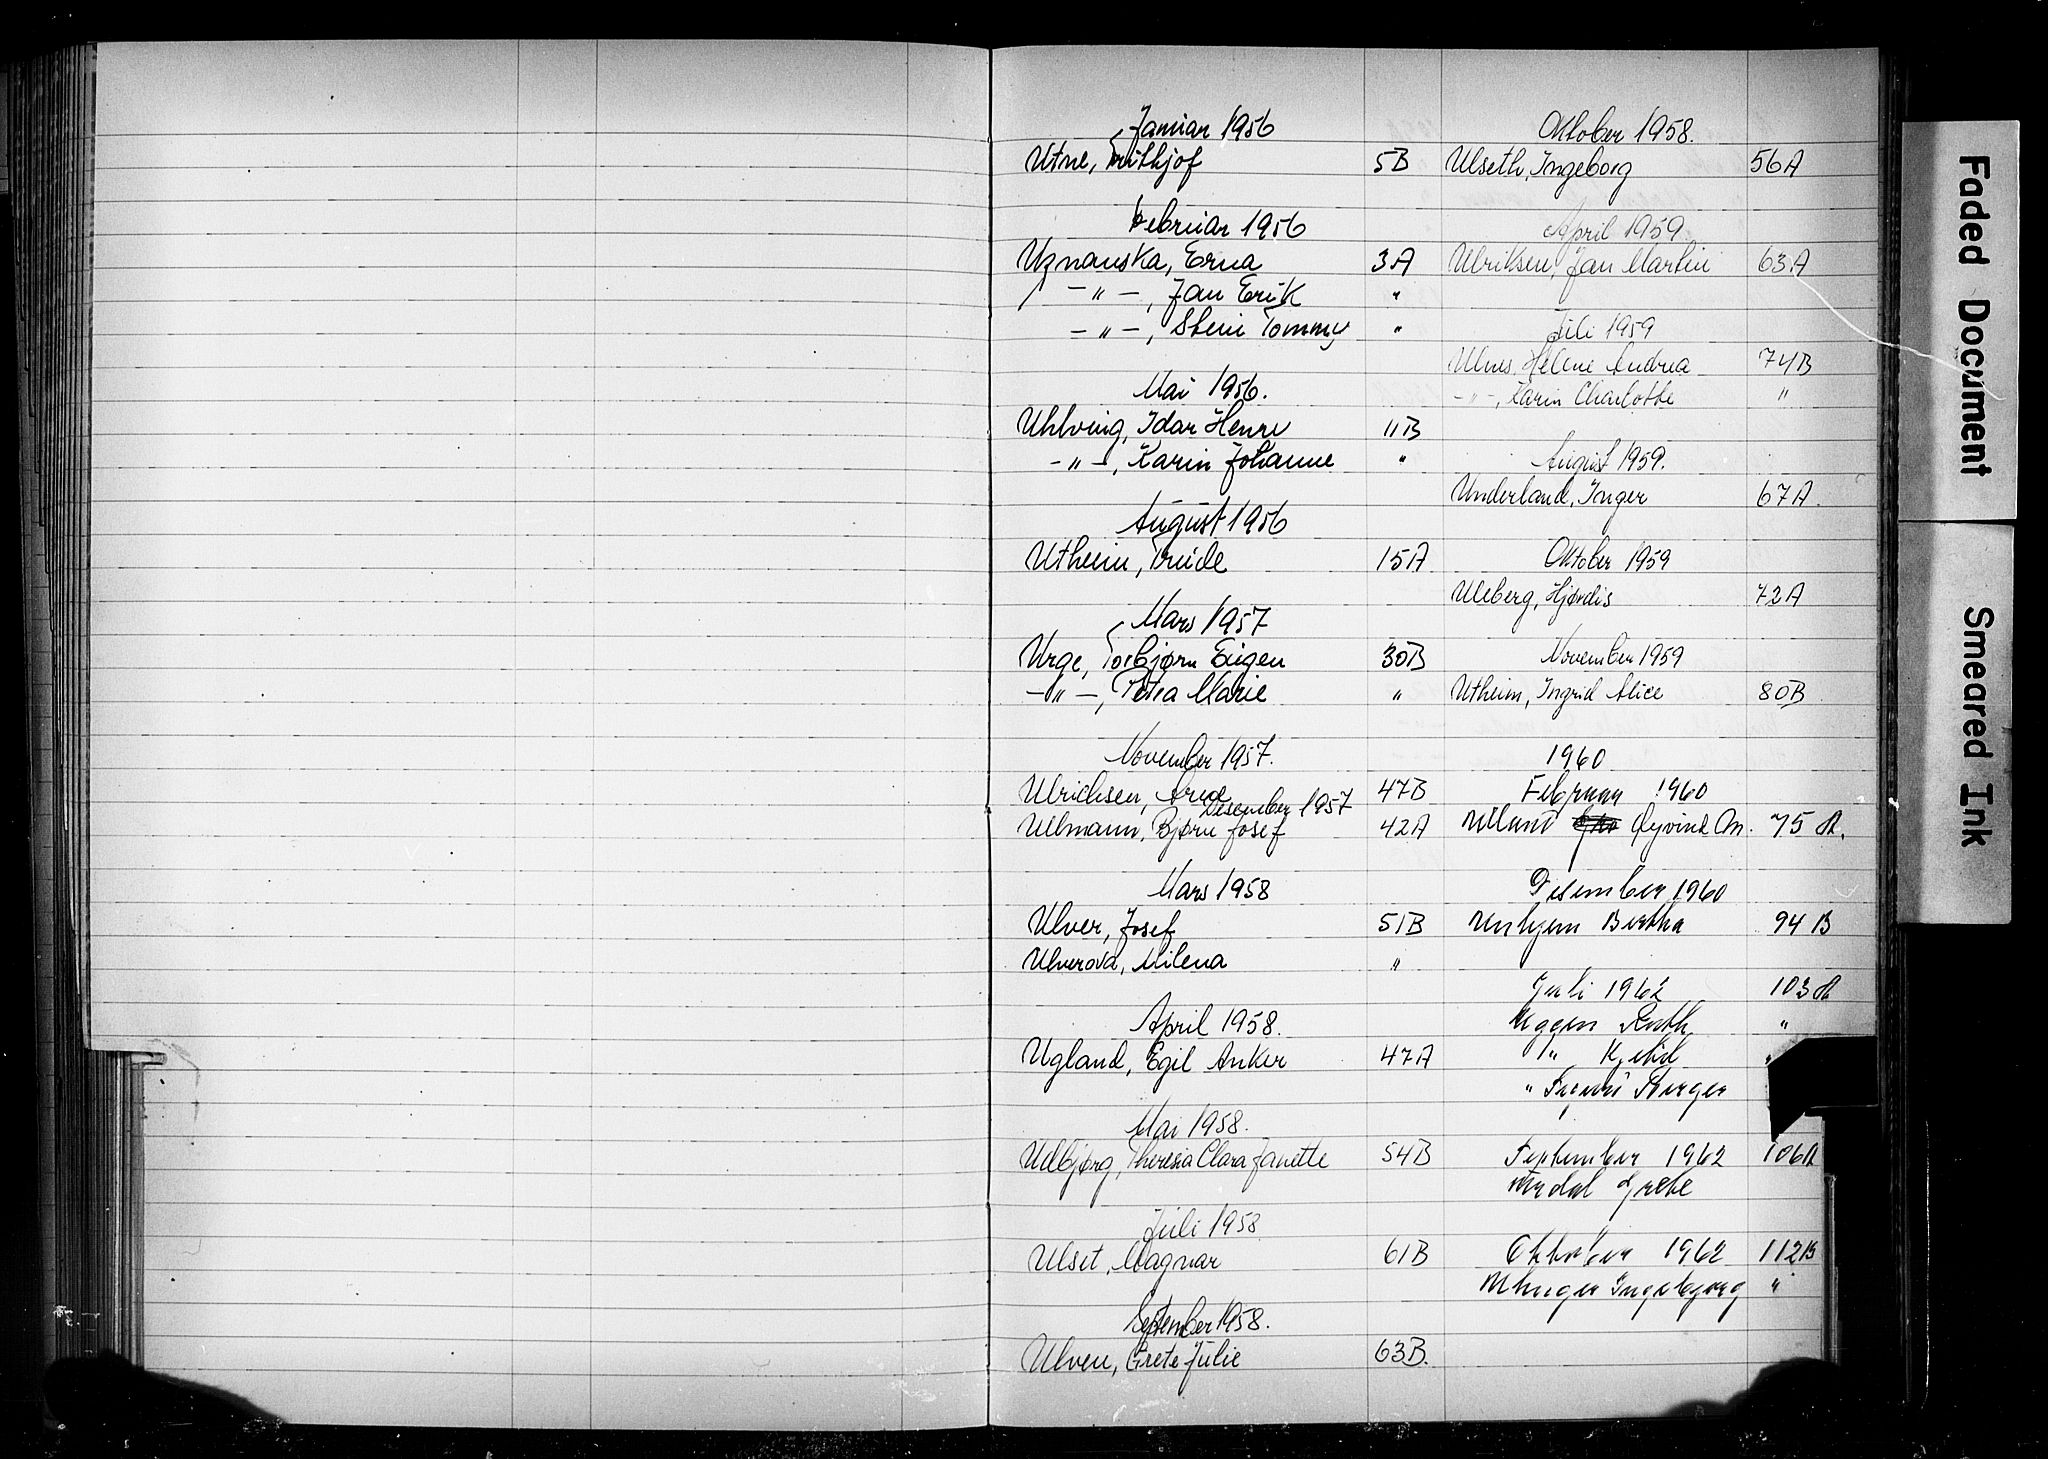 Januar 1956
Utne, Frithjof 5B
Februar 1956
Uznanska, Erna 3A
— " —, Jan Erik "
— " —, Stein Tommy "
Mai 1956.
Uhlving, Idar Henry 11B
— " —, Karin Johanne "
August 1956
Utheim, Trude 15A
Mars 1957
Urge, Torbjørn Eugen 30B
— " —, Petra Marie "
November 1957.
Ulrichsen, Arne 47B
Desember 1957
Ullmann, Bjørn Josef 42A
Mars 1958
Ulver, Josef 51B
Ulverova, Milena "
April 1958.
Ugland, Egil Anker 47A
Mai 1958.
Udbjørg, Theresia Clara Janette 54B
Juli 1958
Ulset, Magnar 61B
September 1958.
Ulven, Grete Julie 63B.
Oktober 1958.
Ulseth, Ingeborg 56A
April 1959
Ulriksen, Jan Martin 63A
Juli 1959
Ulnes, Helene Andrea 74B
— " —, Karin Charlotte "
August 1959.
Underland, Inger 67A.
Oktober 1959
Uleberg, Hjørdis 72A
November 1959
Utheim, Ingrid Alice 80B
1960
Februar 1960
Øyvind 75 A.
Desember 1960
Unhjem Bertha 94 B
Juli 1962 103 A
Uggen Ruth "
" Kjetil "
" Birger
September 1962 106A
Grete
Oktober 1962 112B
Ingebjørg "
Faded Document
Smeared Ink